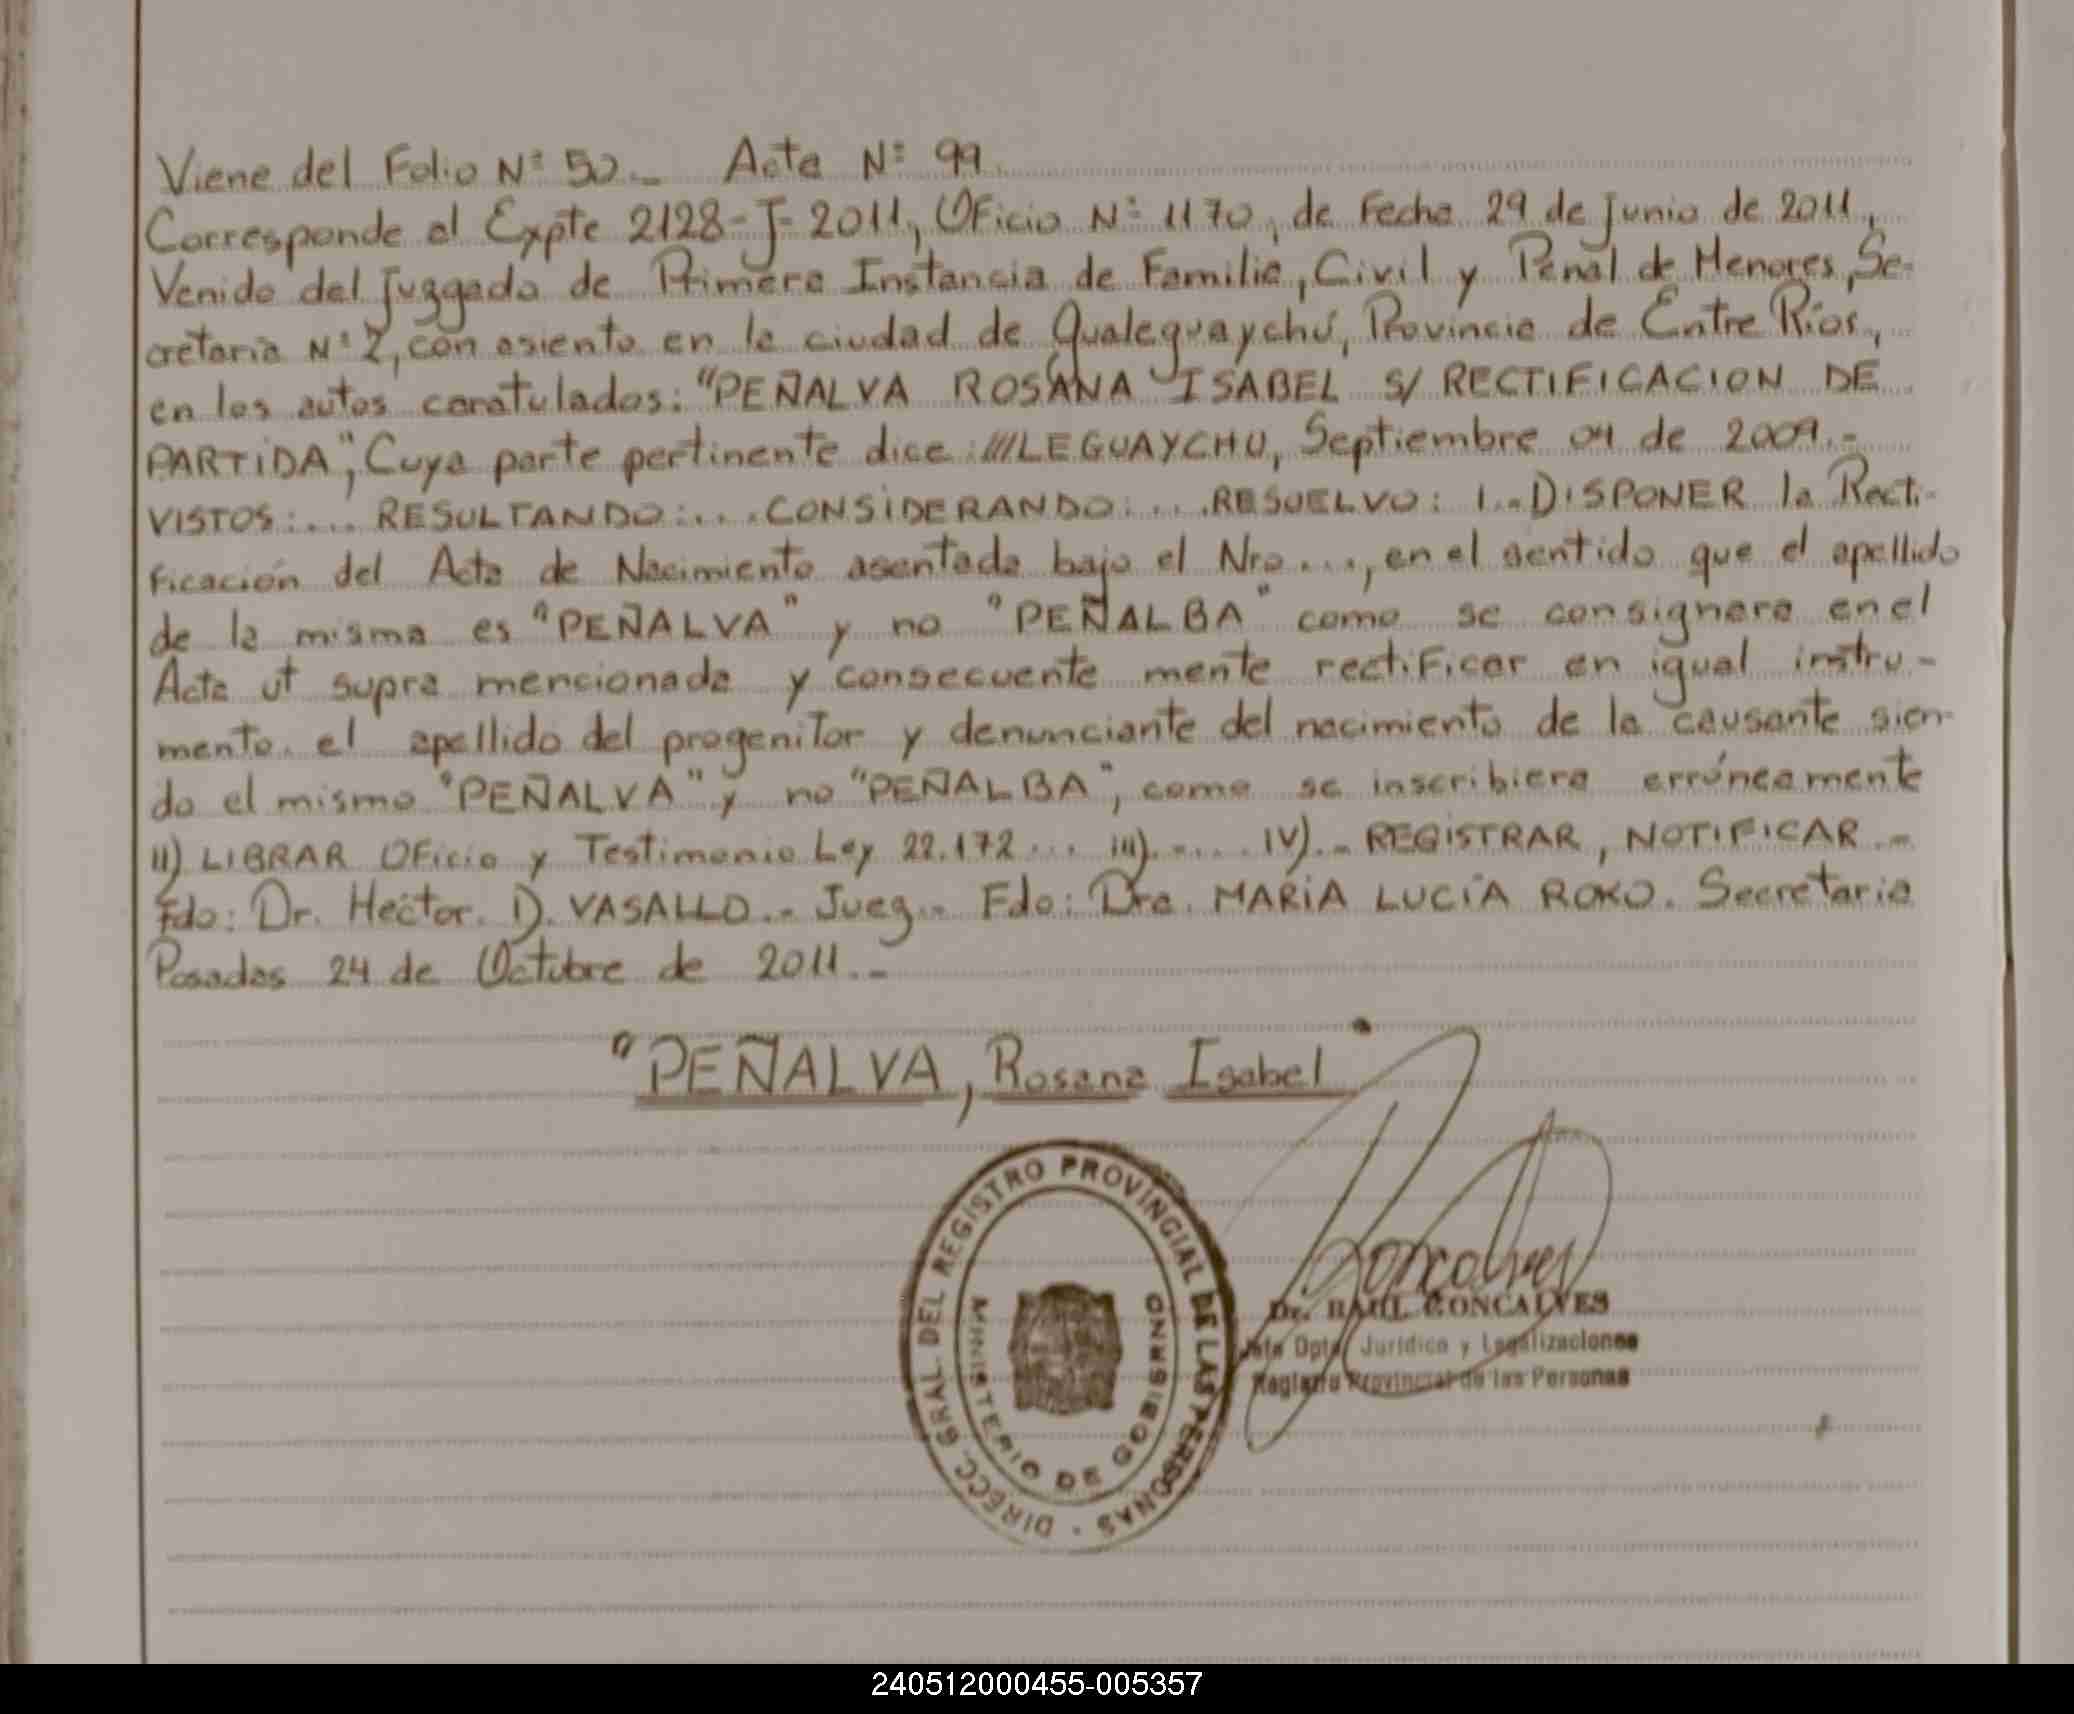 Viene del Folio Nº 50.- Acta Nº 99.
Corresponde al Expte 2128-J-2011, Oficio Nº 1170, de Fecha 29 de Junio de 2011,
Venido del Juzgado de Primera Instancia de Familia, Civil y Penal de Menores, Se-
cretaria Nº 2, con asiento en la ciudad de Gualeguaychú, Provincia de Entre Ríos,
en los autos caratulados: "PEÑALVA ROSANA ISABEL S/ RECTIFICACION DE
PARTIDA", Cuya parte pertinente dice: ///LEGUAYCHU, Septiembre 04 de 2009.-
VISTOS:.... RESULTANDO:... CONSIDERANDO:... RESUELVO: I..- DISPONER la Recti-
ficación del Acta de Nacimiento asentada bajo el Nro...., en el sentido que el apellido
de la misma es "PEÑALVA" y no "PEÑALBA" como se consignara en el
Acta ut supra mencionada y consecuente mente rectificar en igual instru-
mento el apellido del progenitor y denunciante del nacimiento de la causante sien-
do el mismo "PEÑALVA" y no "PEÑALBA", como se inscribiera erróneamente
II) LIBRAR Oficio y Testimonio Ley 22.172... III)..... IV).- REGISTRAR, NOTIFICAR.-
Fdo: Dr. Hector. D. VASALLO.- Juez.- Fdo: Dra. MARIA LUCIA ROKO. Secretaria
Posadas 24 de Octubre de 2011.-
"PEÑALVA, Rosana Isabel"
DIRECC. GRAL. DEL REGISTRO PROVINCIAL DE LAS PERSONAS
MINISTERIO DE GOBIERNO
Goncalves
Dr. RAUL GONCALVES
Jefe Dpto. Jurídico y Legalizaciones
Registro Provincial de las Personas
240512000455-005357